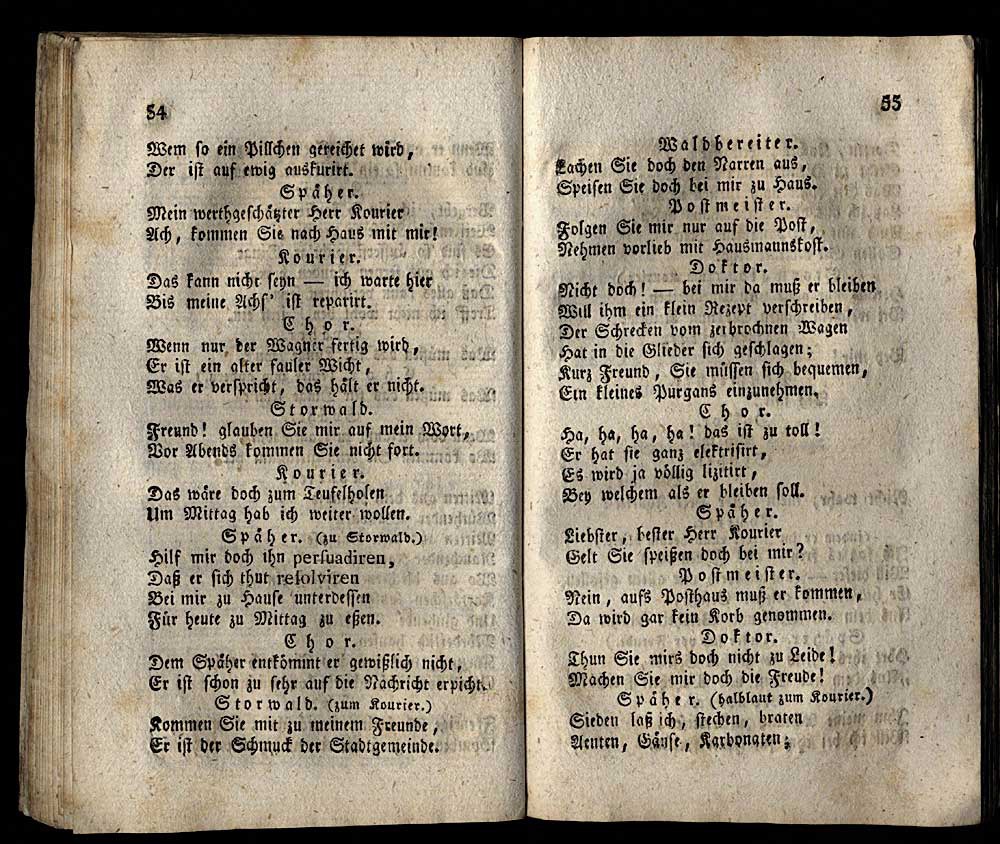 54
Wem so ein Pillchen gereichet wird,
Der ist auf ewig auskurirt.
Späher.
Mein werthgeschätzter Herr Kourier
Ach, kommen Sie nach Haus mit mir!
Kourier.
Das kann nicht seyn — ich warte hier
Bis meine Achs' ist reparirt.
Chor.
Wenn nur der Wagner fertig wird,
Er ist ein alter fauler Wicht,
Was er verspricht, das hält er nicht.
Storwald.
Freund! glauben Sie mir auf mein Wort,
Vor Abends kommen Sie nicht fort.
Kourier.
Das wäre doch zum Teufelholen
Um Mittag hab ich weiter wollen.
Späher. (zu Storwald.)
Hilf mir doch ihn persuadiren,
Daß er sich thut resolviren
Bei mir zu Hause unterdessen
Für heute zu Mittag zu eßen.
Chor.
Dem Späher entkömmt er gewißlich nicht,
Er ist schon zu sehr auf die Nachricht erpicht.
Storwald. (zum Kourier.)
Kommen Sie mit zu meinem Freunde,
Er ist der Schmuck der Stadtgemeinde.
55
Waldbereiter.
Lachen Sie doch den Narren aus,
Speisen Sie doch bei mir zu Haus.
Postmeister.
Folgen Sie mir nur auf die Post,
Nehmen vorlieb mit Hausmaunskost.
Doktor.
Nicht doch! — bei mir da muß er bleiben
Will ihm ein klein Rezept verschreiben,
Der Schrecken vom zerbrochnen Wagen
Hat in die Glieder sich geschlagen;
Kurz Freund, Sie müssen sich bequemen,
Ein kleines Purgans einzunehmen.
Chor.
Ha, ha, ha, ha! das ist zu toll!
Er hat sie ganz elektrisirt,
Es wird ja völlig lizitirt,
Bey welchem als er bleiben soll.
Späher.
Liebster, bester Herr Kourier
Gelt Sie speißen doch bei mir?
Postmeister.
Nein, aufs Posthaus muß er kommen,
Da wird gar kein Korb genommen.
Doktor.
Thun Sie mirs doch nicht zu Leide!
Machen Sie mir doch die Freude!
Späher. (halblaut zum Kourier.)
Sieden laß ich, stechen, braten
Aenten, Gänse, Karbonaten;